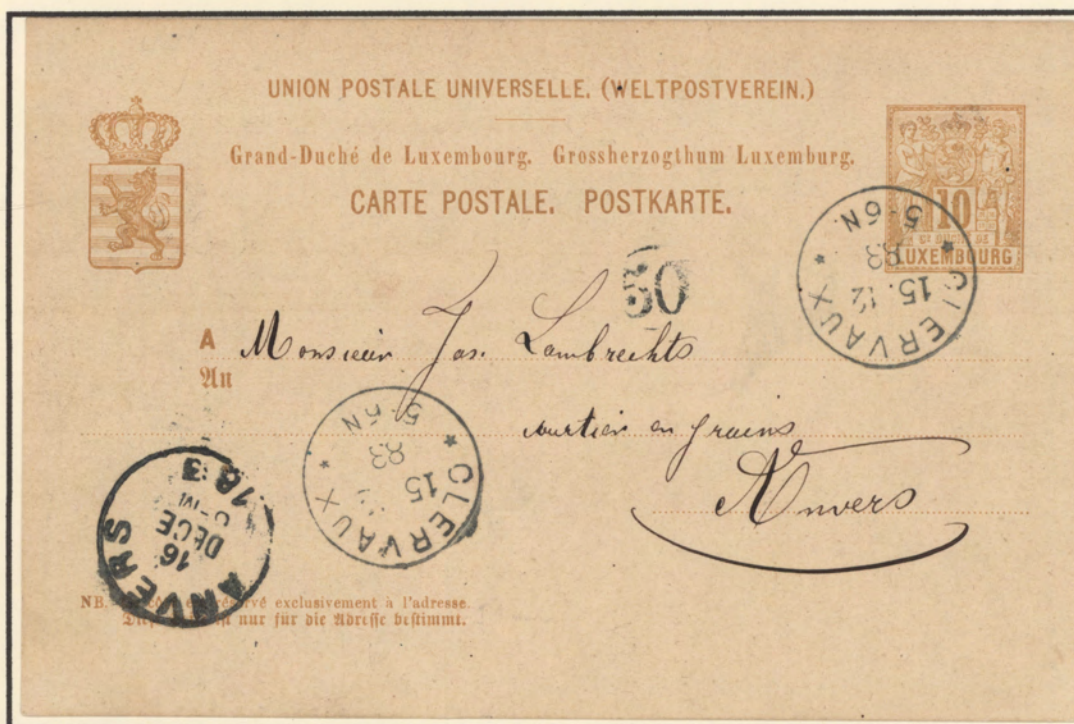 UNION POSTALE UNIVERSELLE. (WELTPOSTVEREIN.)
Grand-Duché de Luxembourg. Grossherzogthum Luxemburg.
CARTE POSTALE. POSTKARTE.
10
GD DUCHÉ DE
LUXEMBOURG
CLERVAUX
15. 12
83
5-6N
30
A Monsieur Jos. Lambrechts
An
courtier en grains
Anvers
CLERVAUX
15
83
5-6N
ANVERS
16
DECE
1883
NB. exclusivement à l'adresse.
nur für die Adresse bestimmt.